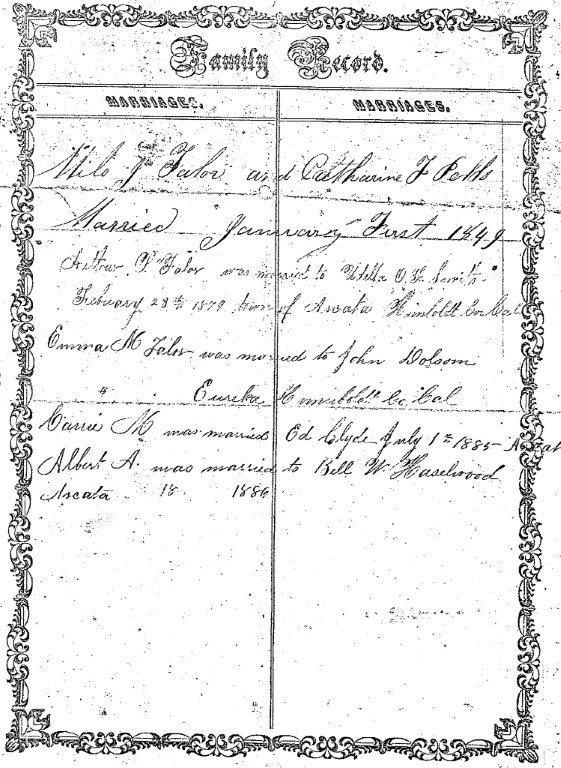 Family Record.
MARRIAGES. MARRIAGES.
Milo J Falor and Catharine F Pells
Married January First 1849
Arthur P Falor was married to Stella O. F. Smith
February 28th 1879 town of Arcata Humboldt Co Cal
Emma M Falor was married to John Dolsom
" Eureka Humboldt Co. Cal
Carrie M was married Ed Clyde July 1st 1885 - Arcat
Albert A. was married to Bell W Haselwood
Arcata 18 1886